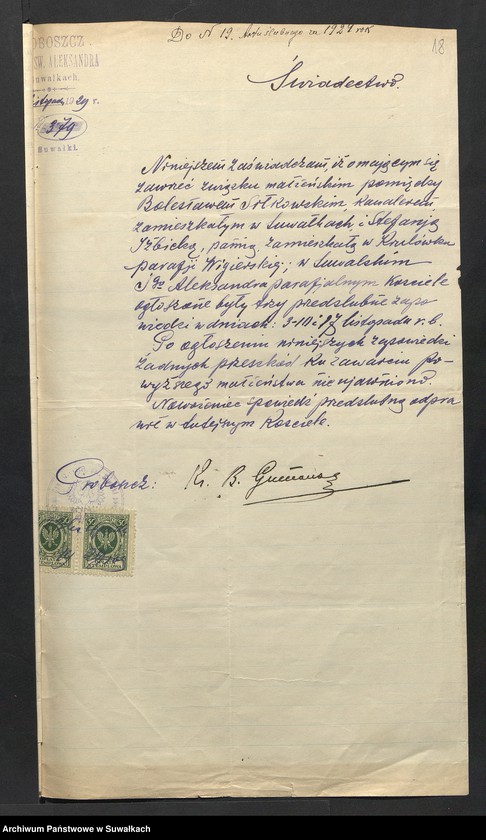 Do N 19. Aktu ślubnego za 1929 rok
18
PROBOSZCZ
ŚW. ALEKSANDRA
Suwałkach.
listopada 1929 r.
379
Suwałki
Świadectwo.
Niniejszem zaświadczam, iż o mającym się
zawrzeć związku małżeńskim pomiędzy
Bolesławem kawalerem
zamieszkałym w Suwałkach i Stefanją
Izbicką, panną zamieszkałą w
parafji Wigierskiej; w Suwalskim
Św. Aleksandra parafjalnym Kościele
ogłoszone były trzy przedślubne zapo
wiedzi w dniach: 3-10 i 17 listopada r. b.
Po ogłoszeniu niniejszych zapowiedzi
żadnych przeszkód ku zawarciu po-
wyższego małżeństwa nie ujawniono.
Nowożeniec spowiedź przedślubną odpra
wił w tutejszym Kościele.
Proboszcz: Ks. B.
Archiwum Państwowe w Suwałkach